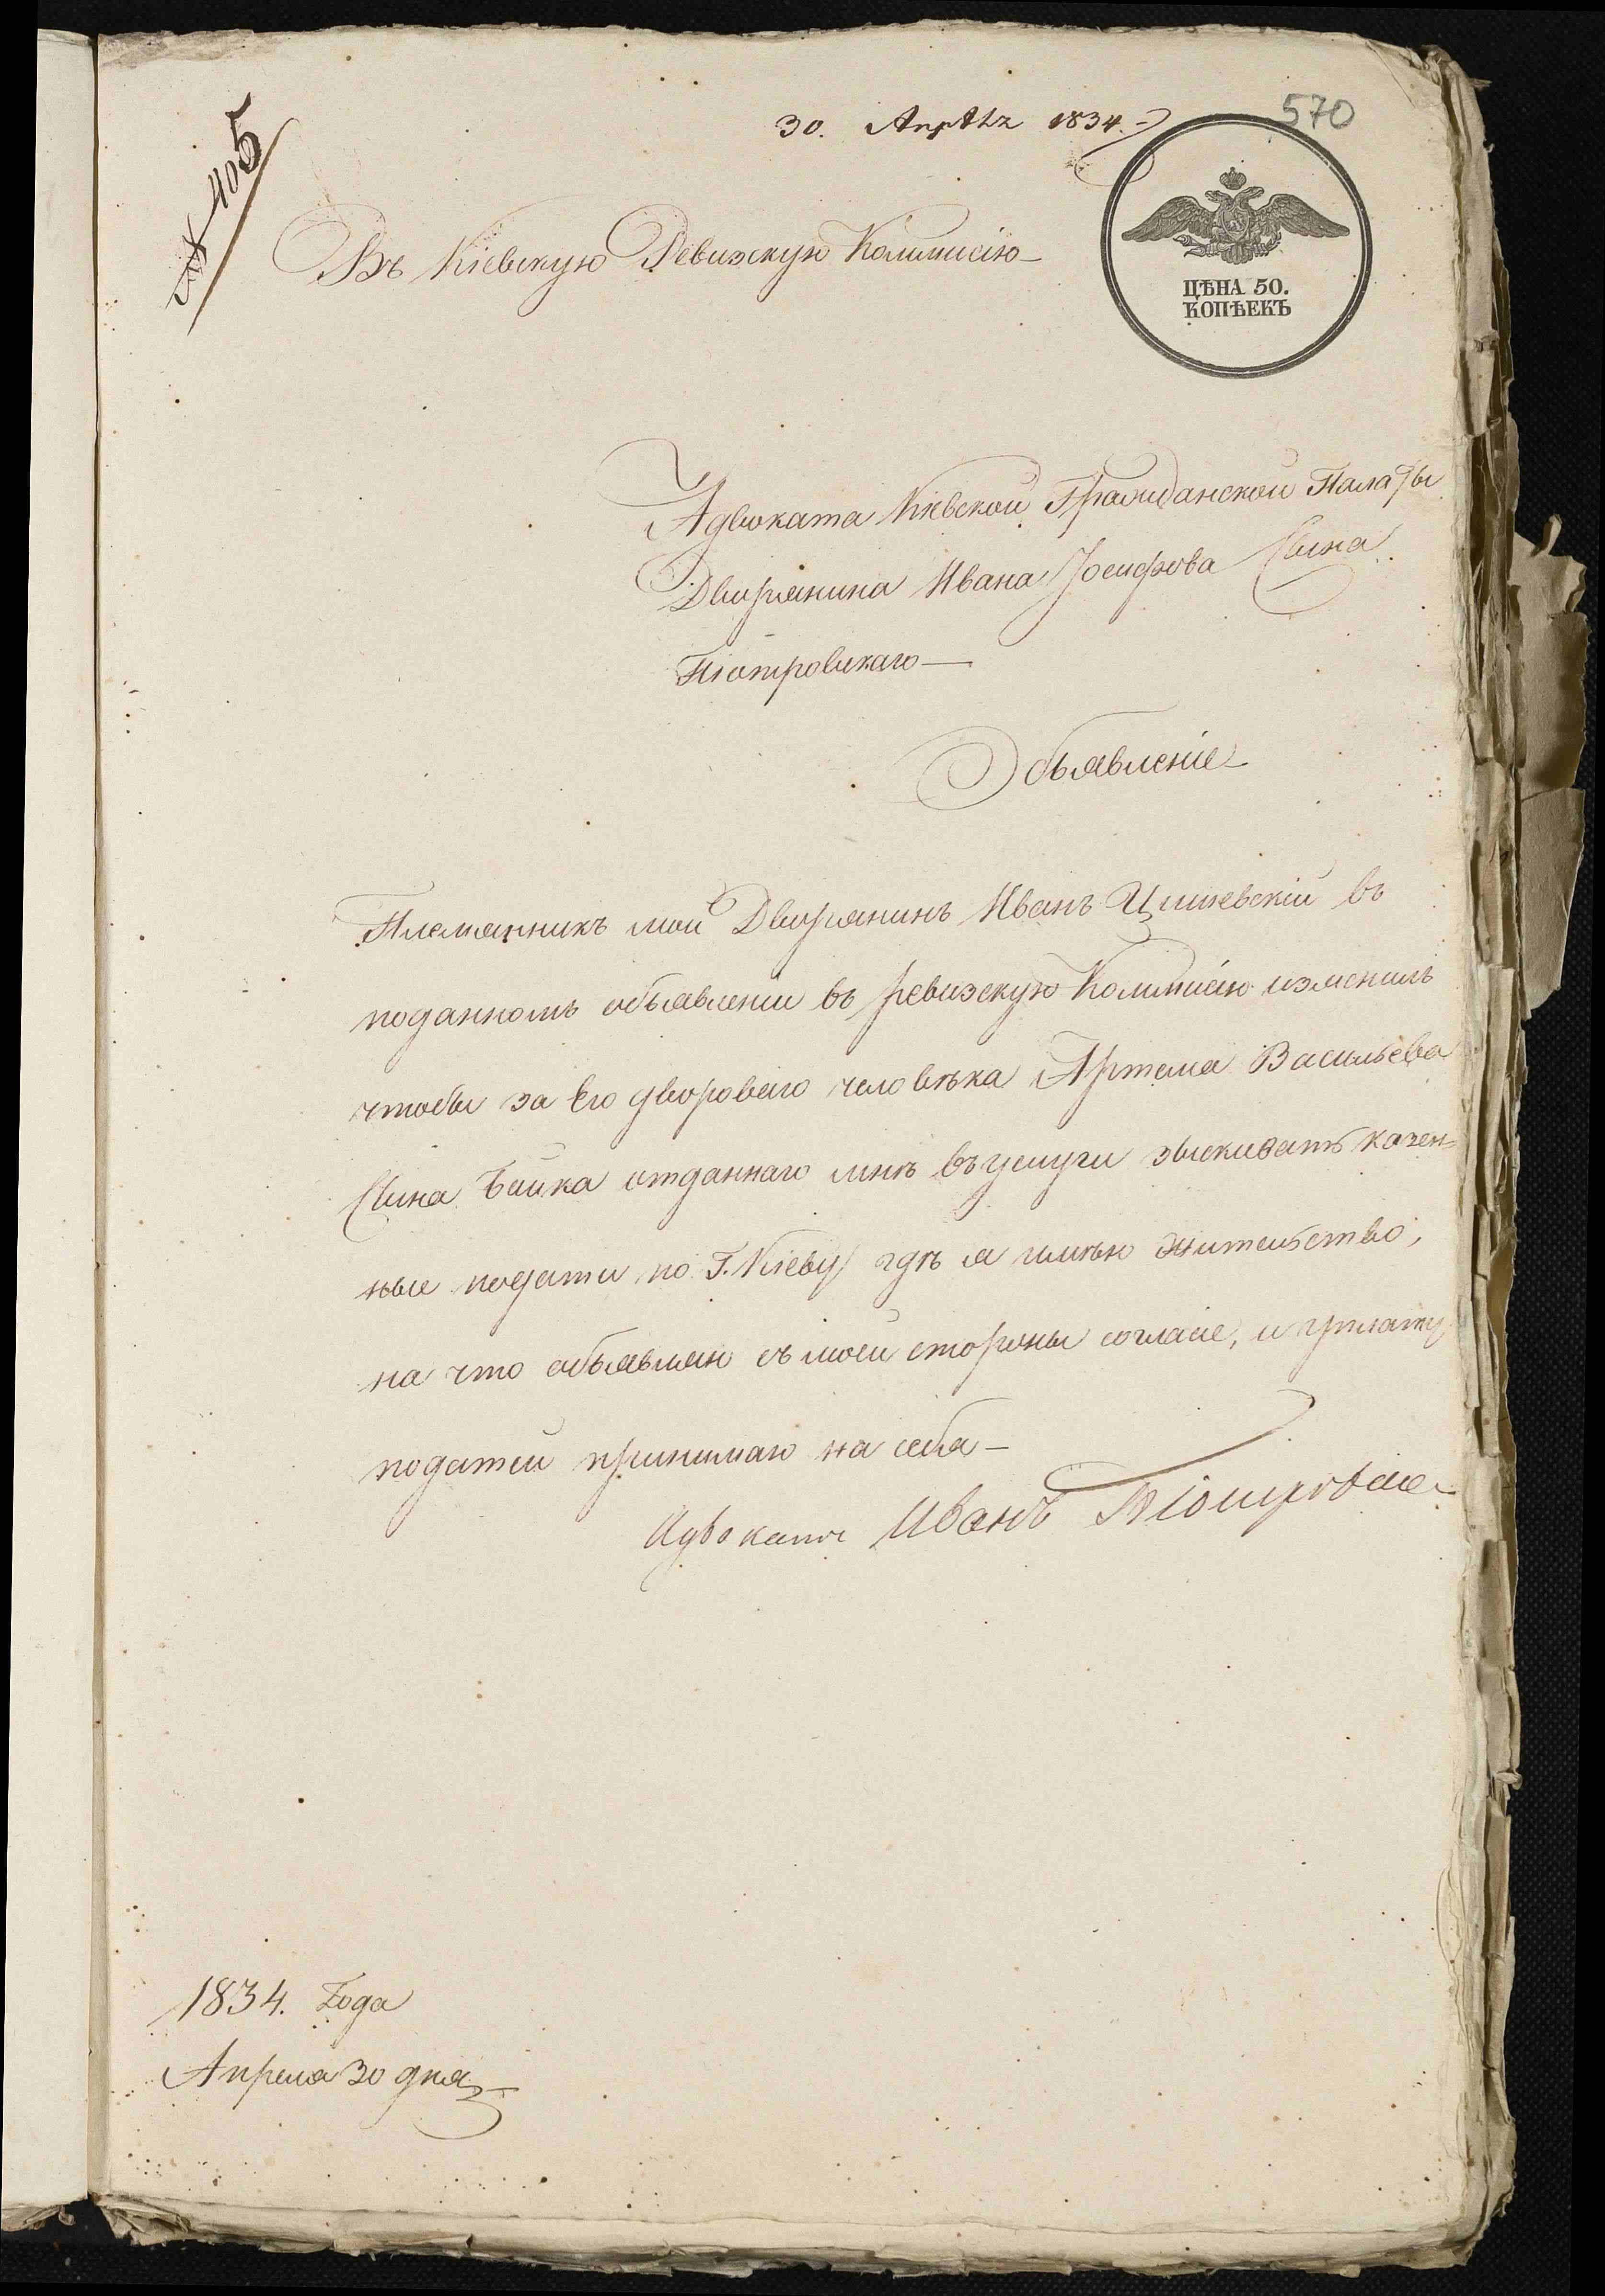 570
30. Апрѣля 1834.
№ 405
Въ Кіевскую Ревизскую Коммисію
ЦѢНА 50.
КОПѢЕКЪ
Адвоката Кіевской Гражданской Палаты
Дворянина Ивана Іосифова Сына
Піотровскаго
Объявленіе
Племянникъ мой Дворянинъ Иванъ
поданномъ объявленіи въ ревизскую Коммисію изъяснилъ
чтобы за Его дворового человѣка Артема Васильева
Сына Бойка отданнаго мнѣ въ услуги взыскивать казен=
ные подати по Г. Кіеву гдѣ я имѣю жительство,
на что объявляю съ моей стороны согласіе, и уплату
податей принимаю на себя
Адвокатъ Иванъ Піотровскій
1834. Года
Апреля 30 дня